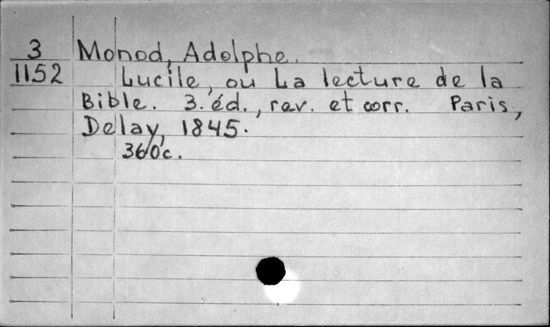 3 Monod, Adolphe.
1152 Lucile, ou La lecture de la
Bible. 3. éd., rev. et corr. Paris,
Delay, 1845.
360c.